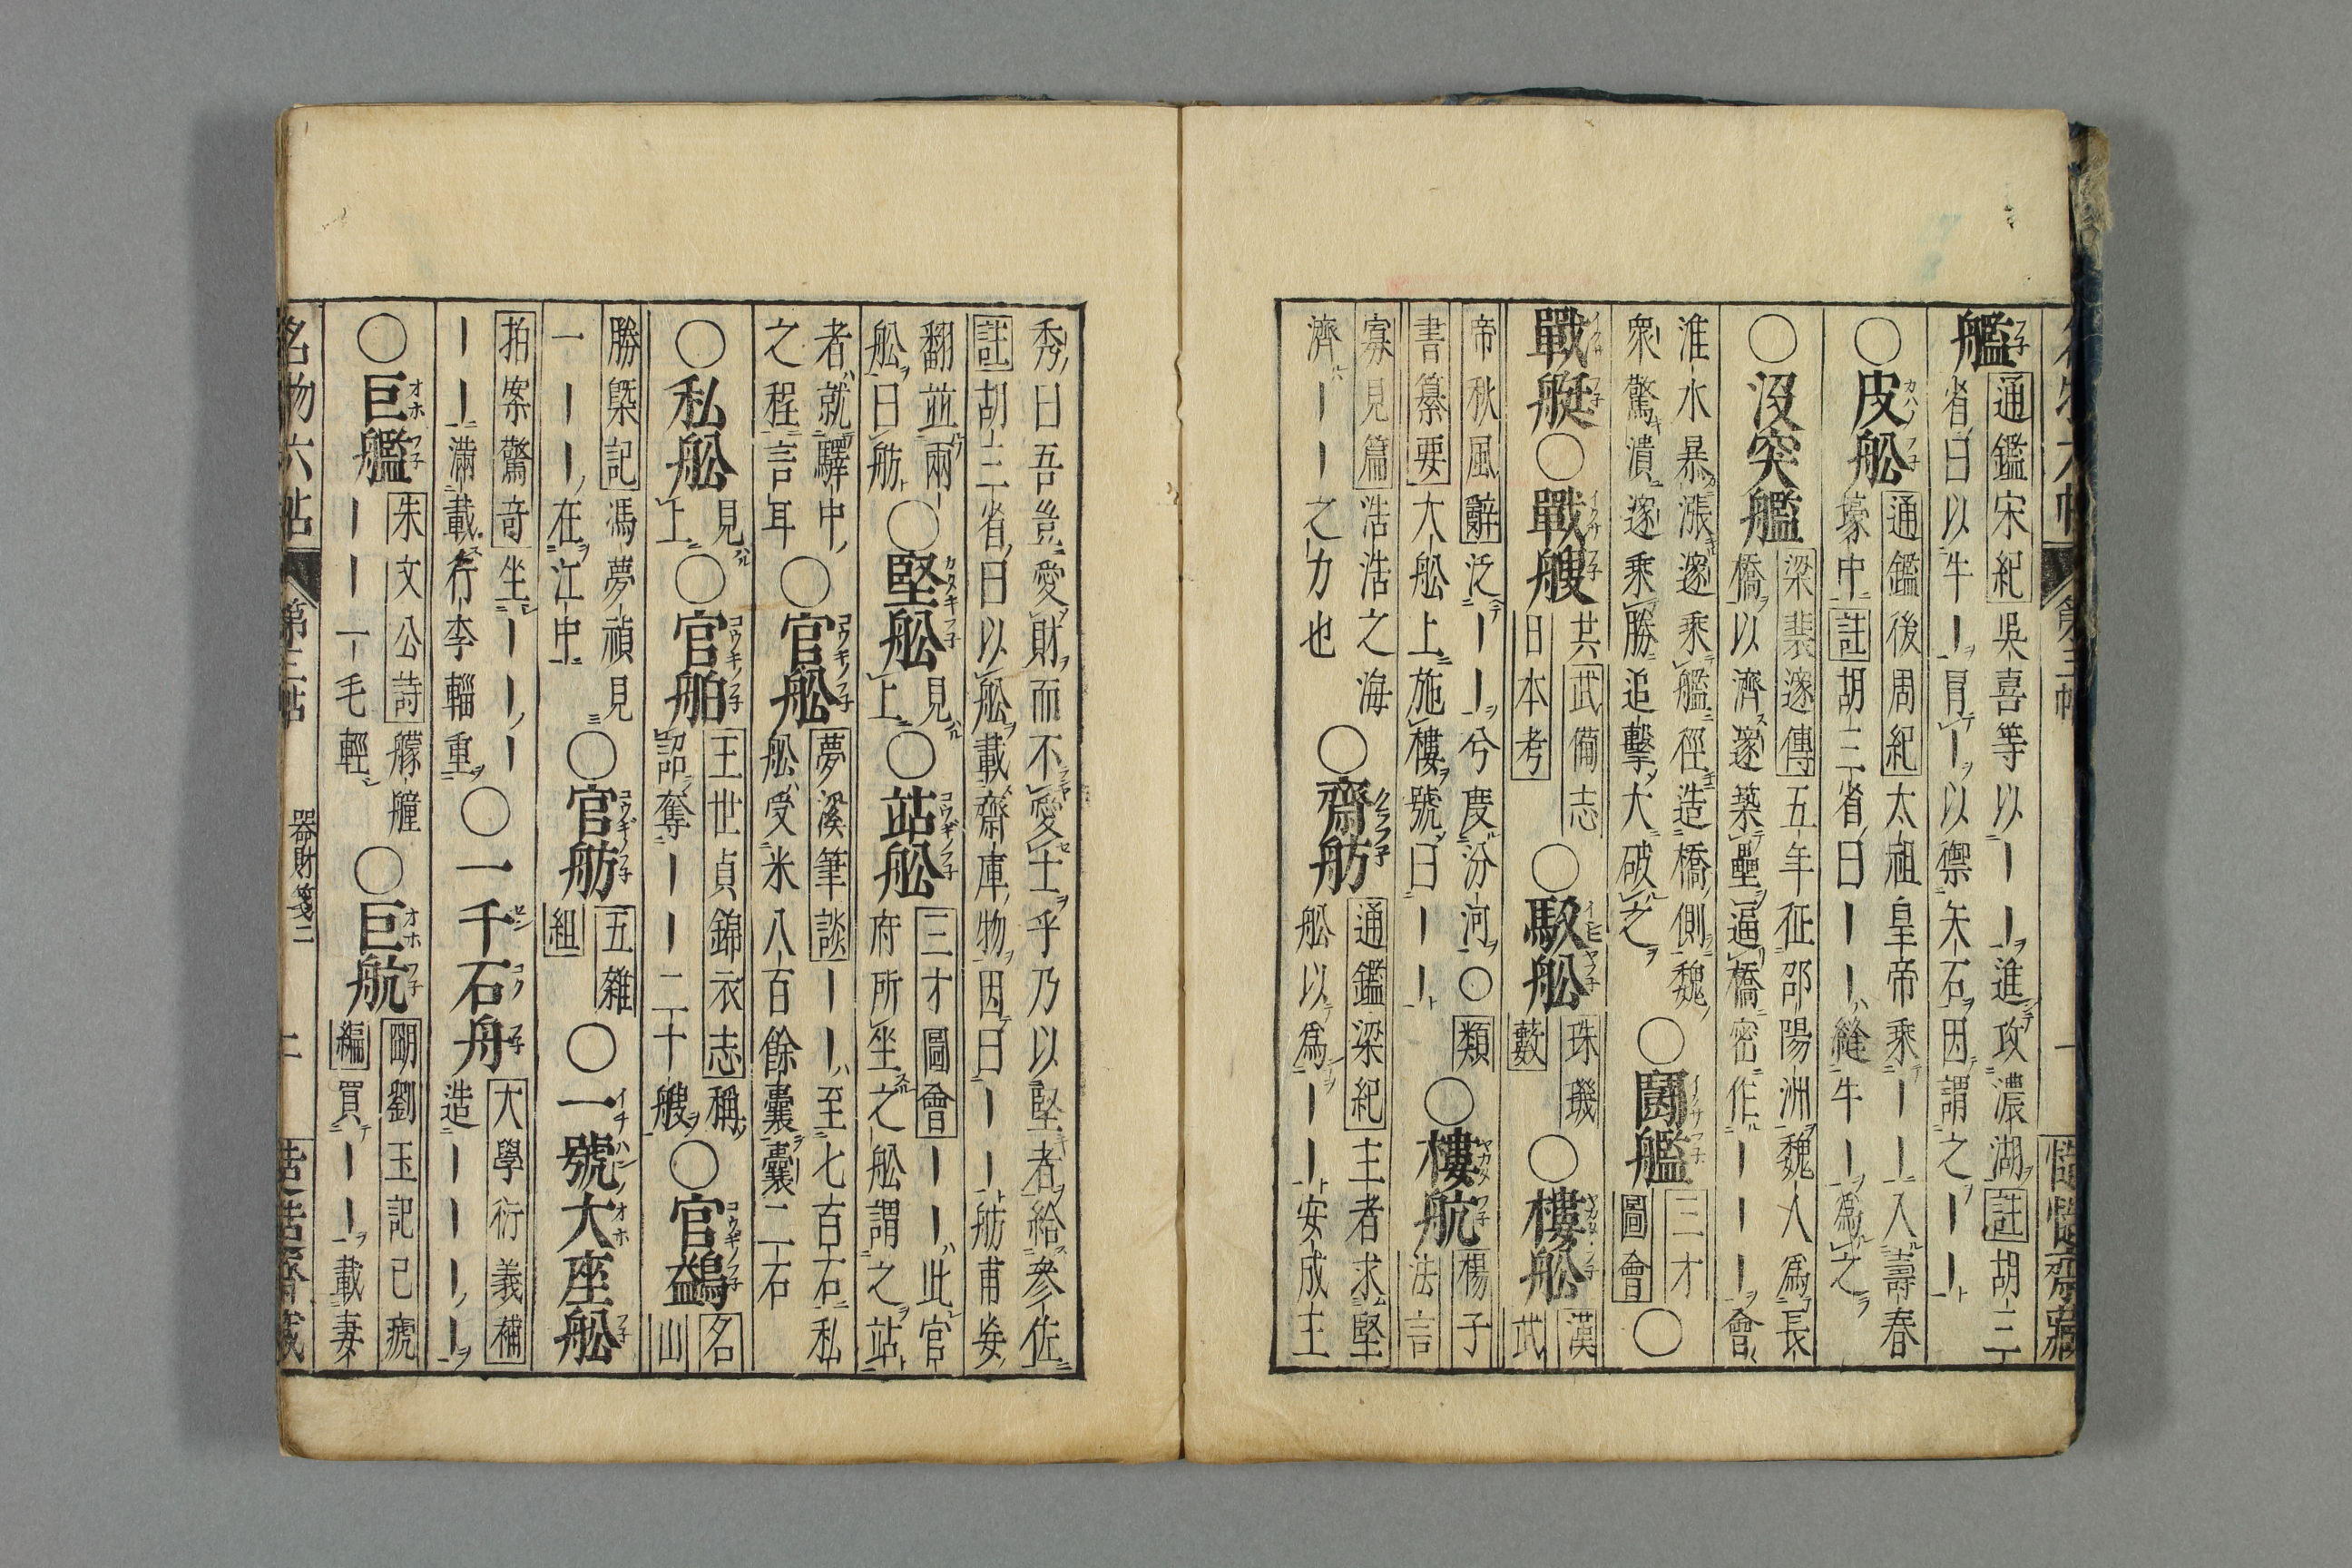 艦
通鑑宋紀吳喜等以｜｜進攻濃湖註胡三
省曰以牛｜冐｜以禦矢石因謂之｜｜
○皮舩
通鑑後周紀太祖皇帝乘｜｜入壽春
壕中註胡三省曰｜｜縫牛｜爲之
○沒突艦
梁裴邃傳五年征邵陽洲魏人爲長
橋以濟邃築壘逼橋密作｜｜｜會
淮水暴漲邃乘艦徑造橋側魏
衆驚潰邃乘勝追擊大破之
○鬪艦
三才
圖會
○
戰艇○戰艘
共武備志
日本考
○馭舩
珠璣
藪
○樓舩
漢
武
帝秋風辭泛｜｜兮度汾河○類
書纂要大舩上施樓號曰｜｜
○樓航
楊子
法言
寡見篇浩浩之海
濟｜｜之力也
○齋舫
通鑑梁紀主者求堅
舩以爲｜｜安成王
秀曰吾豈愛財而不愛士乎乃以堅者給參佐
註胡三省曰以舩載齋庫物因曰｜｜舫甫妄
翻並兩
舩曰舫
○堅舩
見
上
○站舩
三才圖會｜｜此官
府所坐之舩謂之站
者就驛中
之程言耳
○官舩
夢溪筆談｜｜至七百石私
舩受米八百餘囊囊二石
○私舩
見
上
○官舶
王世貞錦衣志稱
詔奪｜｜二十艘
○官鷁
名
山
勝槩記馮夢禎見
一｜｜在江中
○官舫
五雜
組
○一號大座舩
拍案驚奇坐｜｜｜
｜｜滿載行李輜重
○一千石舟
大學衍義補
造｜｜｜｜
○巨艦
朱文公詩艨艟
｜｜一毛輕
○巨航
明劉玉記己瘧
編買｜｜載妻
名物六帖　第三帖　器財箋二　二